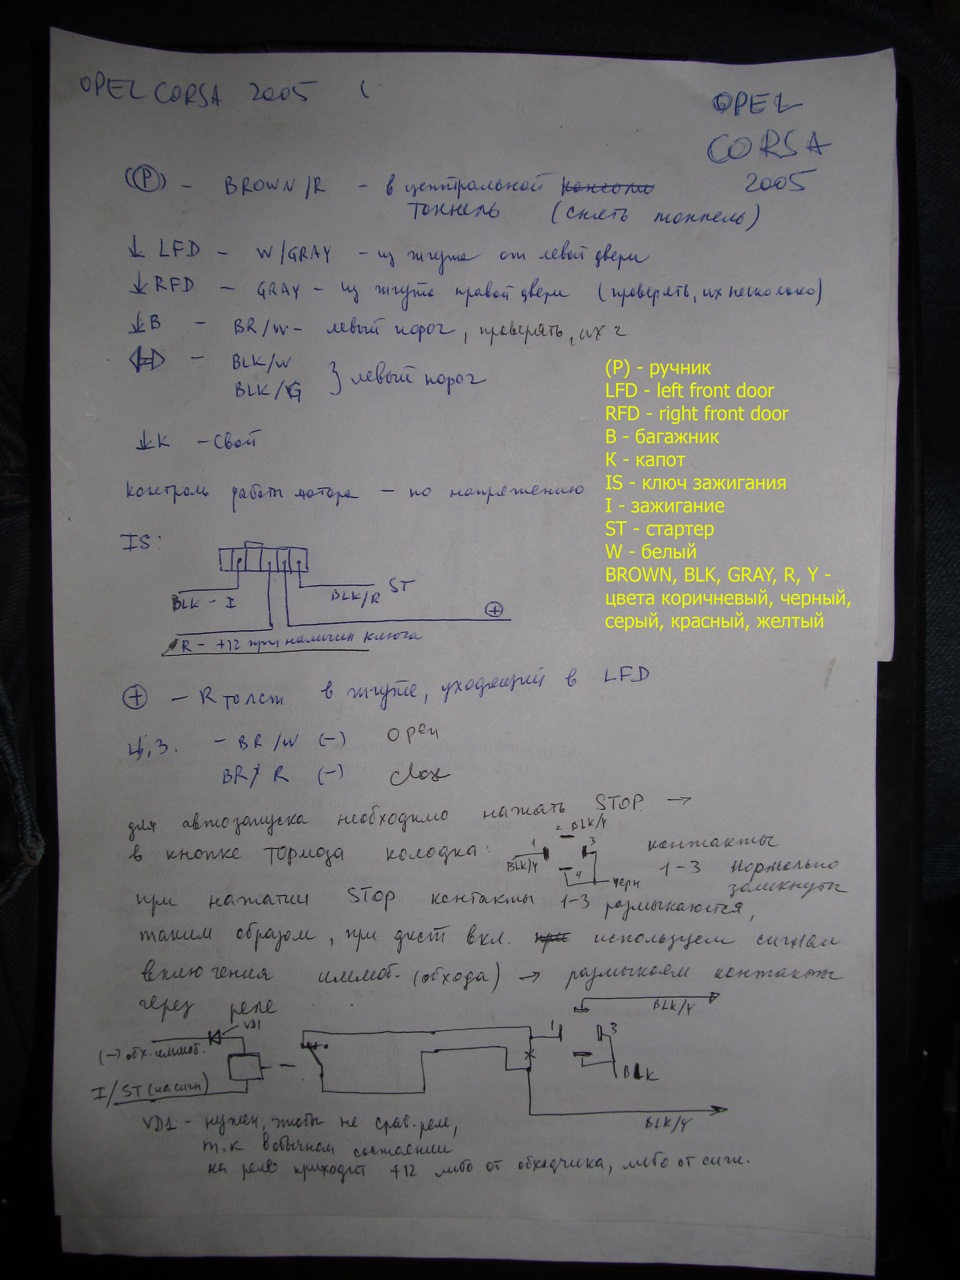 OPEL CORSA 2005 (
OPEL
CORSA
2005
(P) - BROWN/R - в центральной консоли
тоннель (снять тоннель)
↓ LFD - W/GRAY - из жгута от левой двери
↓ RFD - GRAY - из жгута правой двери (проверять, их несколько)
↓ B - BR/W - левый порог, проверять, их 2
- BLK/W
BLK/G } левый порог
↓ K - Свой
Контроль работы мотора - по напряжению
(P) - ручник
LFD - left front door
RFD - right front door
B - багажник
K - капот
IS - ключ зажигания
I - зажигание
ST - стартер
W - белый
BROWN, BLK, GRAY, R, Y -
цвета коричневый, черный,
серый, красный, желтый
IS:
BLK - I
BLK/R ST
+
R - +12 при наличии ключа
+ - R толст в жгуте, уходящий в LFD
Ц.З. - BR/W (-) open
BR/R (-) close
для автозапуска необходимо нажать STOP →
в кнопке тормоза колодка:
2 BLK/Y
1 3
BLK/Y
4 черн
контакты
1-3 нормально
замкнуты
при нажатии STOP контакты 1-3 размыкаются,
таким образом, при дист вкл. при используем сигнал
включения иммоб. (обхода) → размыкаем контакты
через реле
VD1
(-) обх. иммоб.
I/ST (на сигн)
1 3
BLK/Y
BLK
BLK/Y
VD1 - нужен, чтобы не сраб. реле,
т.к в обычном состоянии
на реле приходит +12 либо от обходчика, либо от сигн.